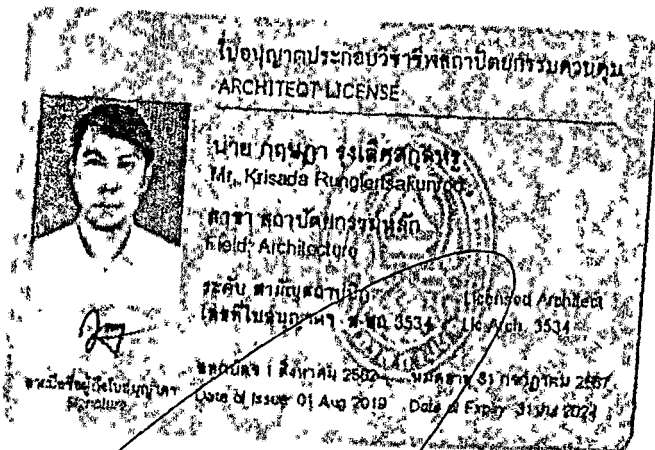 ใบอนุญาตประกอบวิชาชีพสถาปัตยกรรมควบคุม
ARCHITECT LICENSE
นาย กฤษฎา
Mr. Krisada
สาขา สถาปัตยกรรมหลัก
Field: Architecture
ระดับ สามัญสถาปนิก Licensed Architect
เลขที่ใบอนุญาต ส-สถ 3534 Lic Arch. 3534
ออกบัตร 1 สิงหาคม 2562 หมดอายุ 31 กรกฎาคม 2567
Date of Issue 01 Aug 2019 Date of Expiry 31 Jul 2024
ลายมือชื่อผู้ถือใบอนุญาต
Signature